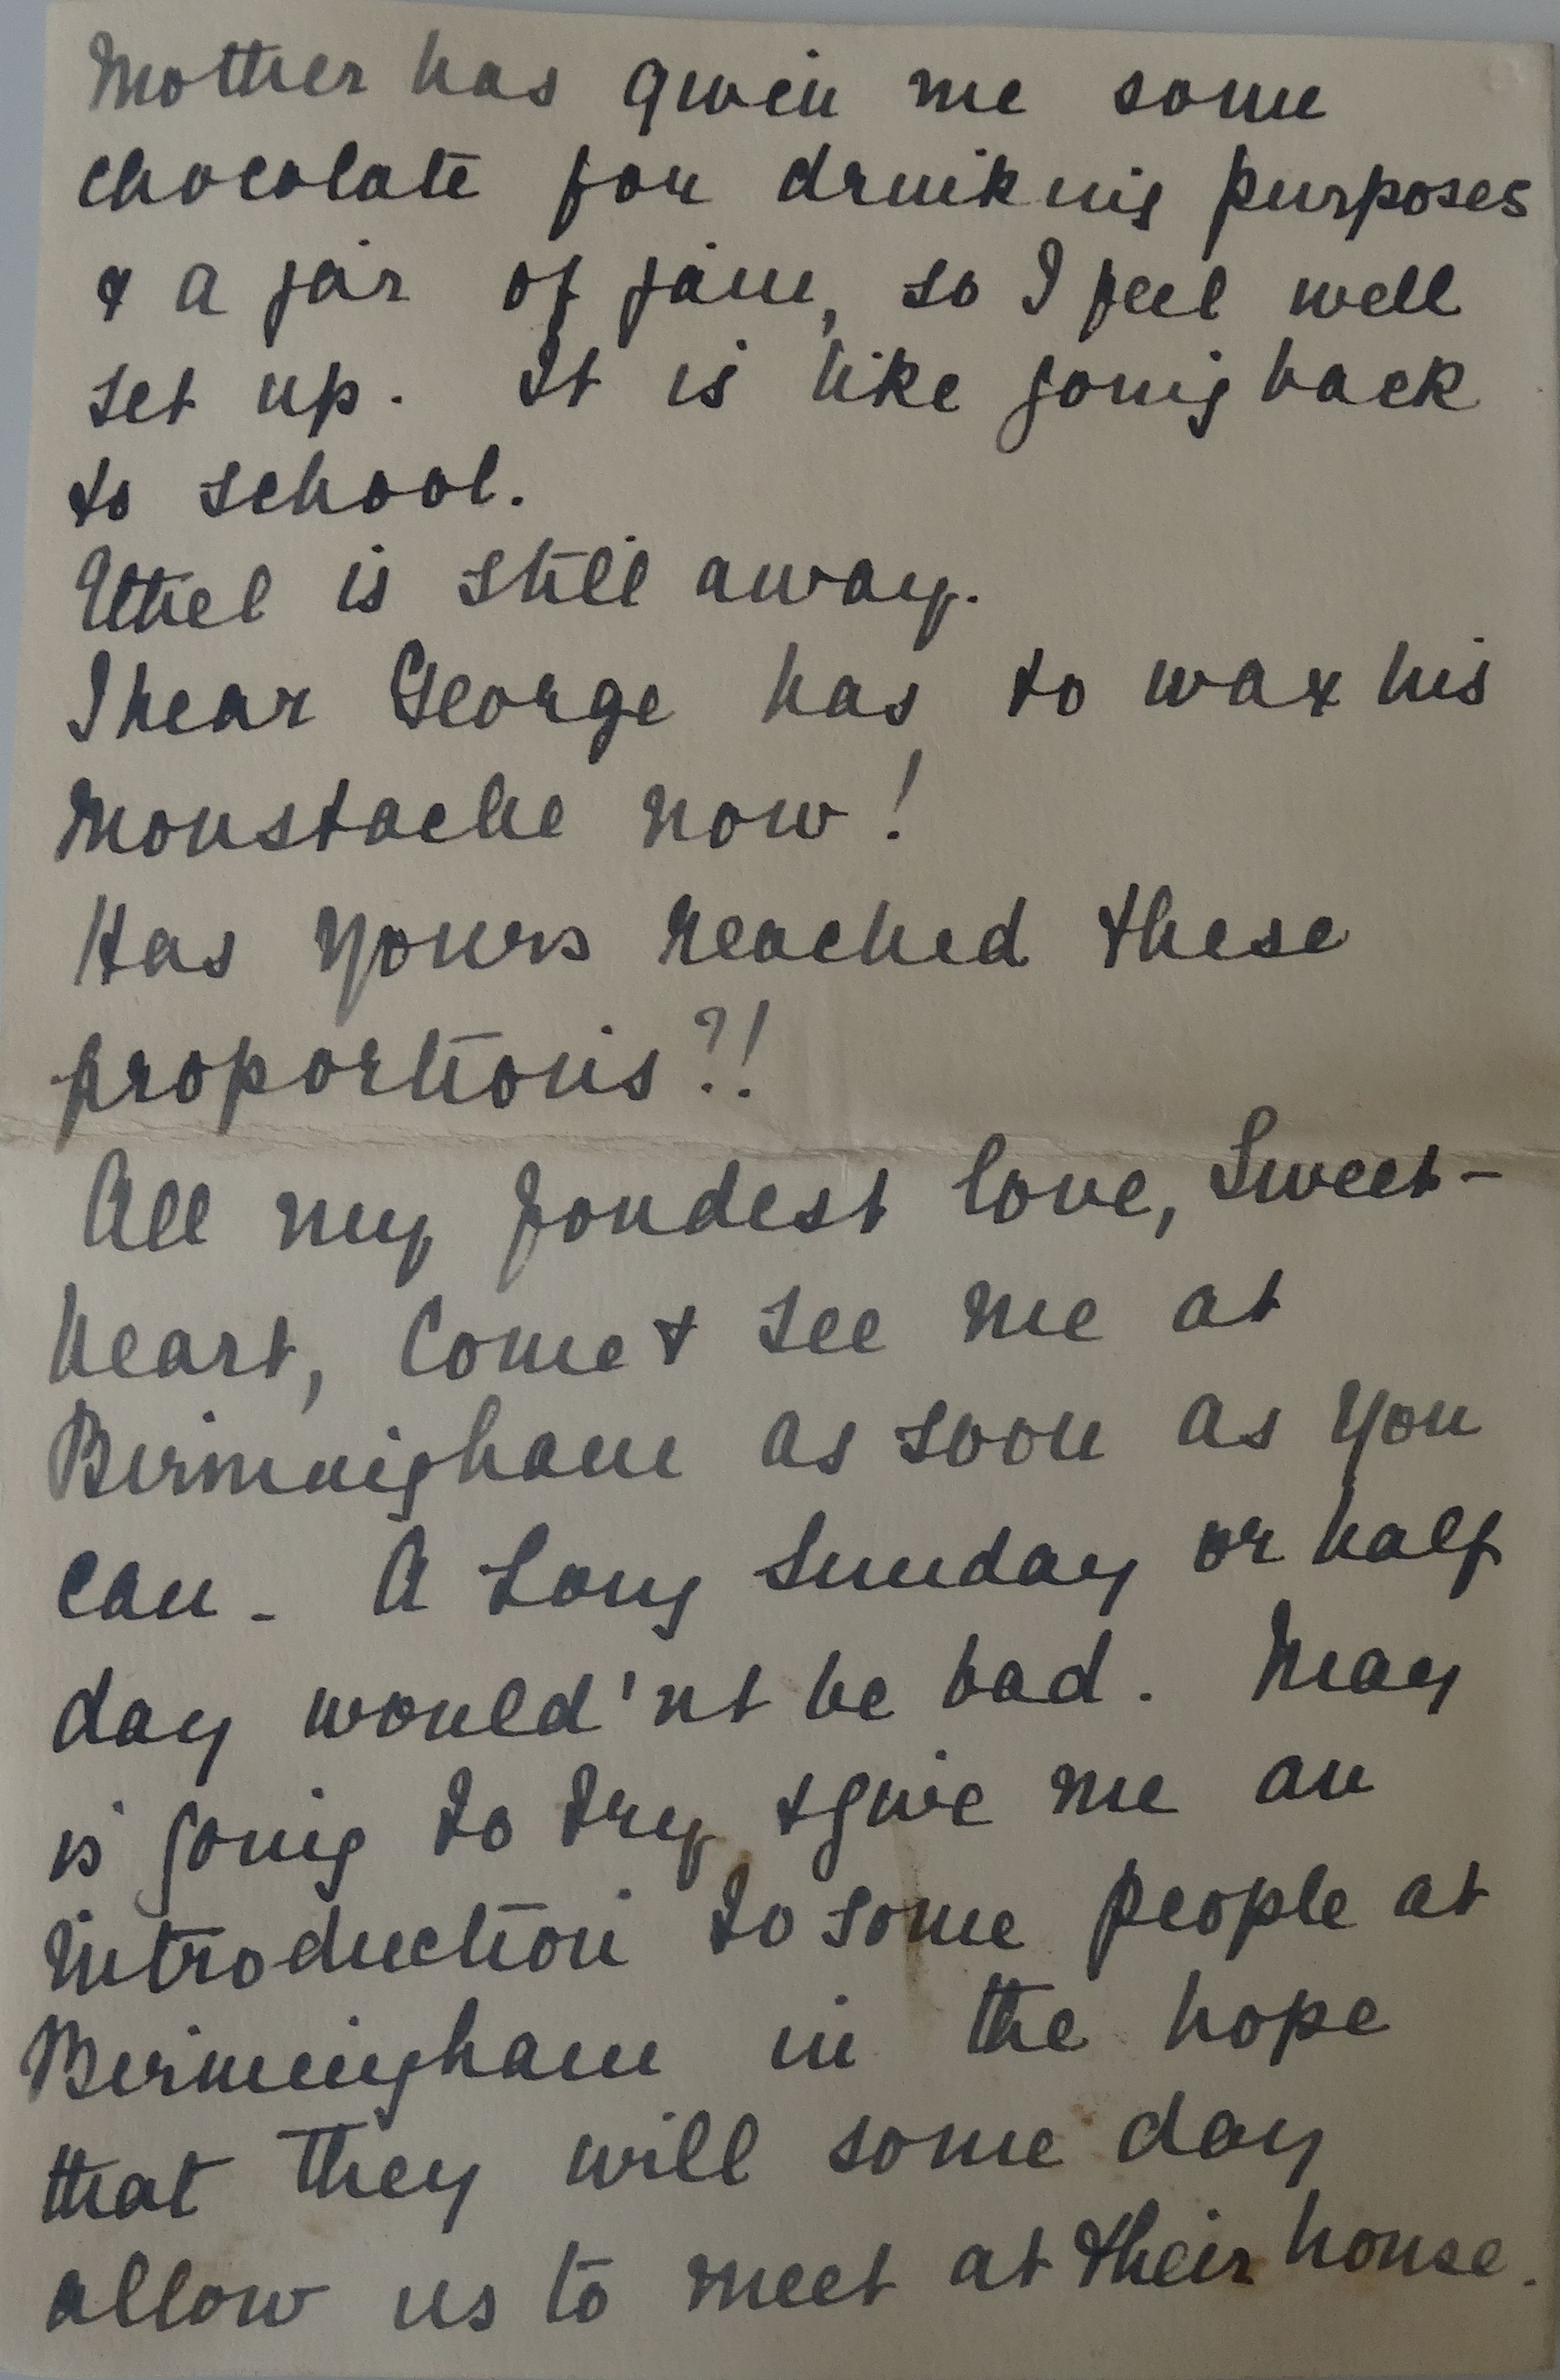 Mother has given me some
chocolate for drinking purposes
& a jar of jam, so I feel well
set up. It is like going back
to school.
Ethel is still away.
I hear George has to wax his
moustache now!
Has yours reached these
proportions?!
All my fondest love, Sweet-
heart, Come & see me at
Birmingham as soon as you
can - A Long Sunday or half
day would'nt be bad. May
is going to try & give me an
introduction to some people at
Birmingham in the hope
that they will some day
allow us to meet at their house.